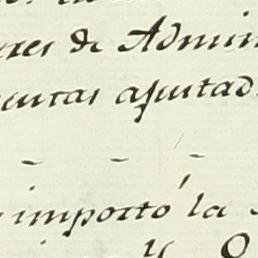 res de Admin
entas ajustad
importó la
y O